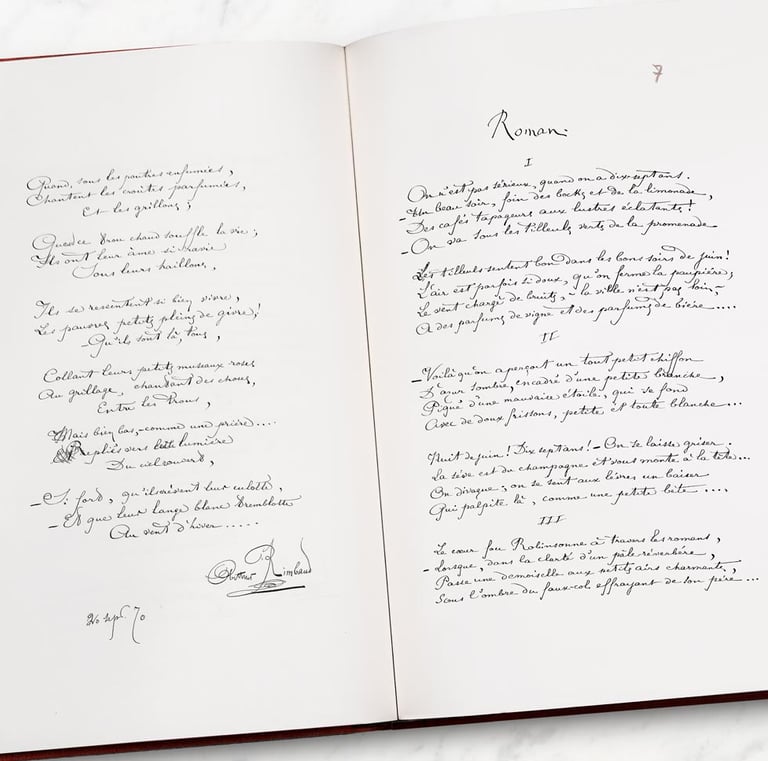 Quand, sous les poutres enfumées,
Chantent les croûtes parfumées,
Et les grillons ;
Que ce trou chaud souffle la vie ;
Ils ont leur âme si ravie
Sous leurs haillons,
Ils se ressentent si bien vivre,
Les pauvres petits pleins de givre,!
– Qu'ils sont là, tous,
Collant leurs petits museaux roses
Au grillage, chantant des choses,
Entre les trous,
Mais bien bas, – comme une prière....
Repliés vers cette lumière
Du ciel rouvert,
– Si fort, qu'ils crèvent leur culotte,
– Et que leur lange blanc tremblotte
Au vent d'hiver.....
Arthur Rimbaud
20 sept. 70
7
Roman.
I
On n'est pas sérieux, quand on a dix-sept ans.
– Un beau soir, foin des bocks et de la limonade,
Des cafés tapageurs aux lustres éclatants !
– On va sous les tilleuls verts de la promenade
Les tilleuls sentent bon dans les bons soirs de juin !
L'air est parfois si doux, qu'on ferme la paupière ;
Le vent chargé de bruits, – la ville n'est pas loin, –
A des parfums de vigne et des parfums de bière....
II
– Voilà qu'on aperçoit un tout petit chiffon
D'azur sombre, encadré d'une petite branche,
Piqué d'une mauvaise étoile, qui se fond
Avec de doux frissons, petite et toute blanche...
Nuit de juin ! Dix-sept ans ! – On se laisse griser.
La sève est du champagne et vous monte à la tête...
On divague ; on se sent aux lèvres un baiser
Qui palpite là, comme une petite bête....
III
Le cœur fou Robinsonne à travers les romans,
– Lorsque, dans la clarté d'un pâle réverbère,
Passe une demoiselle aux petits airs charmants,
Sous l'ombre du faux-col effrayant de son père...